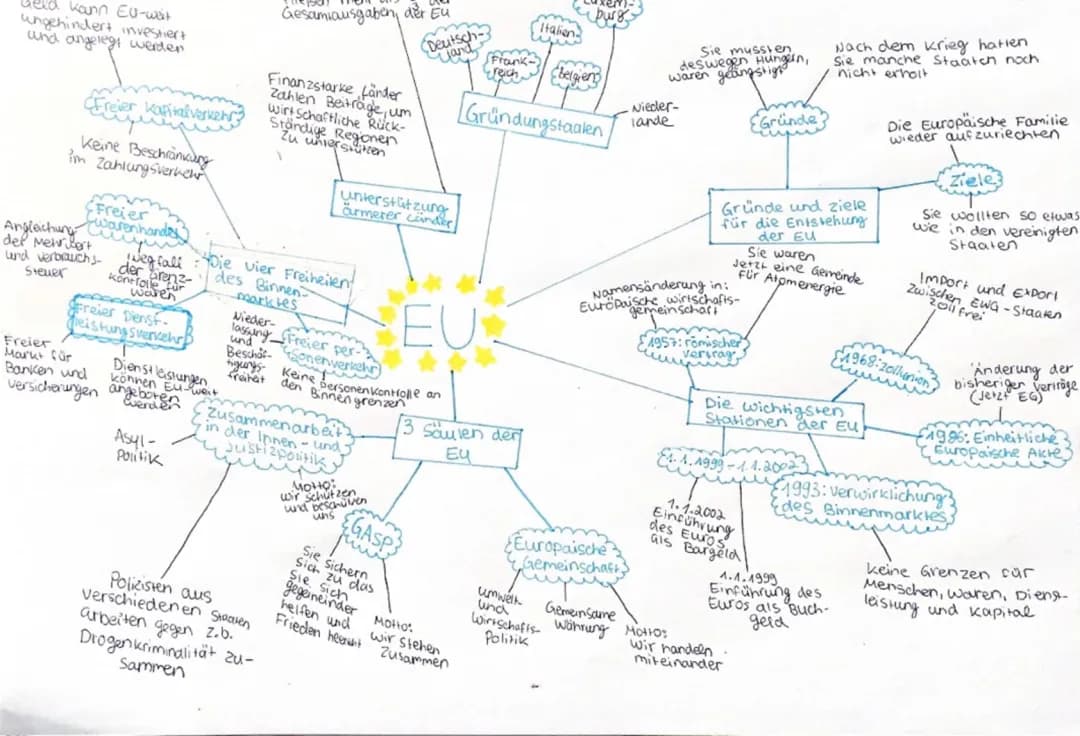 Geld kann EU-weit
ungehindert investiert
und angelegt werden
Freier Kapitalverkehr
Keine Beschränkung
im Zahlungsverkehr
Gesamtausgaben der EU
Finanzstarke Länder
zahlen Beiträge, um
wirtschaftliche Rück-
ständige Regionen
zu unterstützen
unterstützung
ärmerer Länder
Deutsch-
land
Frank-
reich
Italien
Belgien
Luxem-
burg
Nieder-
lande
Gründungstaaten
Sie mussten
deswegen Hungern,
waren geängstigt
Nach dem Krieg hatten
Sie manche Staaten noch
nicht erholt
Gründe
Die Europäische Familie
wieder aufzurichten
Ziele
Sie wollten so etwas
wie in den vereinigten
Staaten
Gründe und Ziele
für die Entstehung
der EU
Freier
Warenhandel
Angleichung
der Mehrwert
und verbrauchs-
steuer
Wegfall
der Grenz-
kontrolle für
Waren
Die Vier Freiheiten
des Binnen-
marktes
Freier Dienst-
leistungsverkehr
Freier
Markt für
Banken und
Versicherungen
Dienstleistungen
können EU-weit
angeboten
werden
Nieder-
lassung
und
Beschäf-
tigungs-
freiheit
Freier per-
sonenverkehr
Keine personenkontrolle an
den Binnengrenzen
EU
Namensänderung in:
Europäische wirtschafts-
gemeinschaft
Sie waren
Jetzt eine Gemeinde
für Atomenergie
1957: römischer
vertrag
Import und Export
zwischen EWG-Staaten
zoll frei
1968: Zollunion
Änderung der
bisheriger verträge
(Jetzt EG)
1986: Einheitliche
Europäische Akte
Die wichtigsten
Stationen der EU
1.1.1999-1.1.2002
1.1.2002
Einführung
des Euros
als Bargeld
1.1.1999
Einführung des
Euros als Buch-
geld
1993: Verwirklichung
des Binnenmarktes
Keine Grenzen für
Menschen, Waren, Dienst-
leistung und Kapital
3 Säulen der
EU
Zusammenarbeit
in der Innen- und
Justizpolitik
Asyl-
Politik
Motto:
wir schützen
und beschützen
uns
Polizisten aus
verschiedenen Staaten
arbeiten gegen z.b.
Drogenkriminalität zu-
sammen
GASP
Sie Sichern
sich zu das
Sie sich
gegeneinder
helfen und
Frieden
Motto:
wir stehen
zusammen
Europäische
Gemeinschaft
umwelt
und
Wirtschafts-
Politik
Gemeinsame
Währung
Motto:
Wir handeln
miteinander